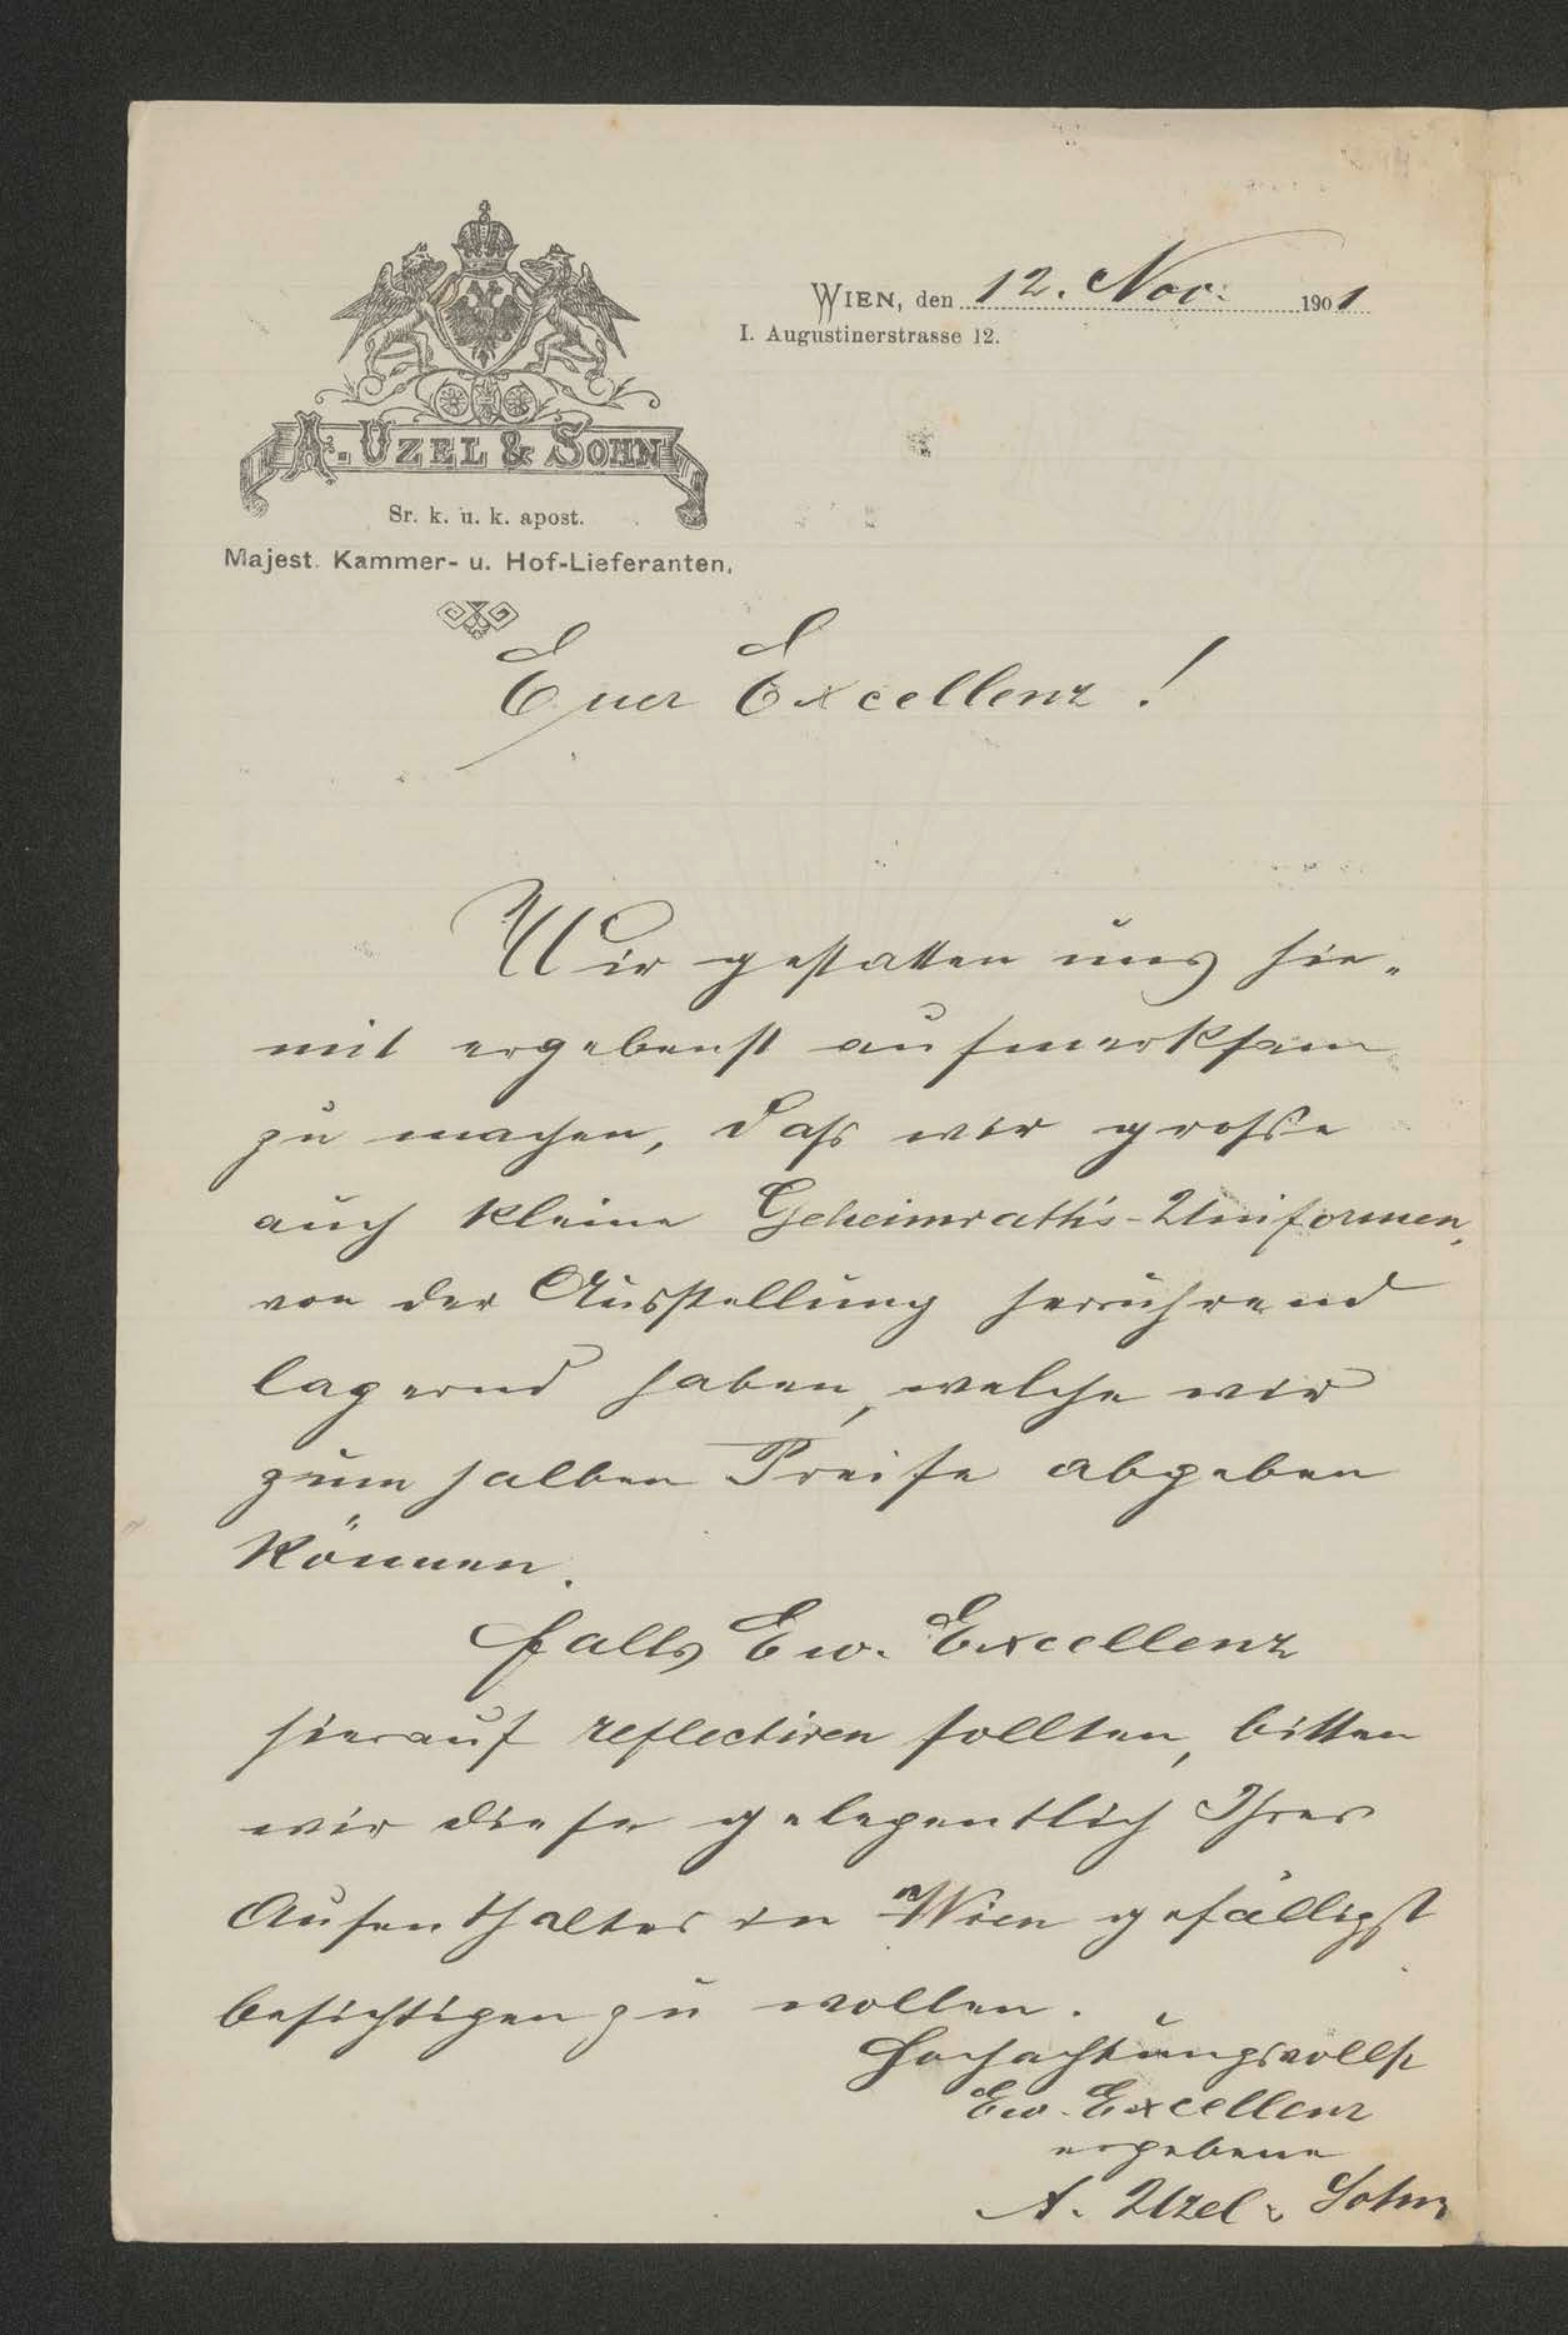 WIEN, den 12. Nov. 1901
I. Augustinerstrasse 12.
A. UZEL & SOHN
Sr. k. u. k. apost.
Majest. Kammer- u. Hof-Lieferanten.
Euer Excellenz!
Wir gestatten uns hie-
mit ergebenst aufmerksam
zu machen, dass wir grosse
auch kleine Geheimrath's-Uniformen,
von der Ausstellung herrührend
lagernd haben, welche wir
zum halben Preise abgeben
können.
Falls Ew. Excellenz
hierauf reflectiren sollten, bitten
wir diese gelegentlich Ihres
Aufenthaltes in Wien gefälligst
besichtigen zu wollen.
Hochachtungsvollst
Ew. Excellenz
ergebene
A. Uzel & Sohn